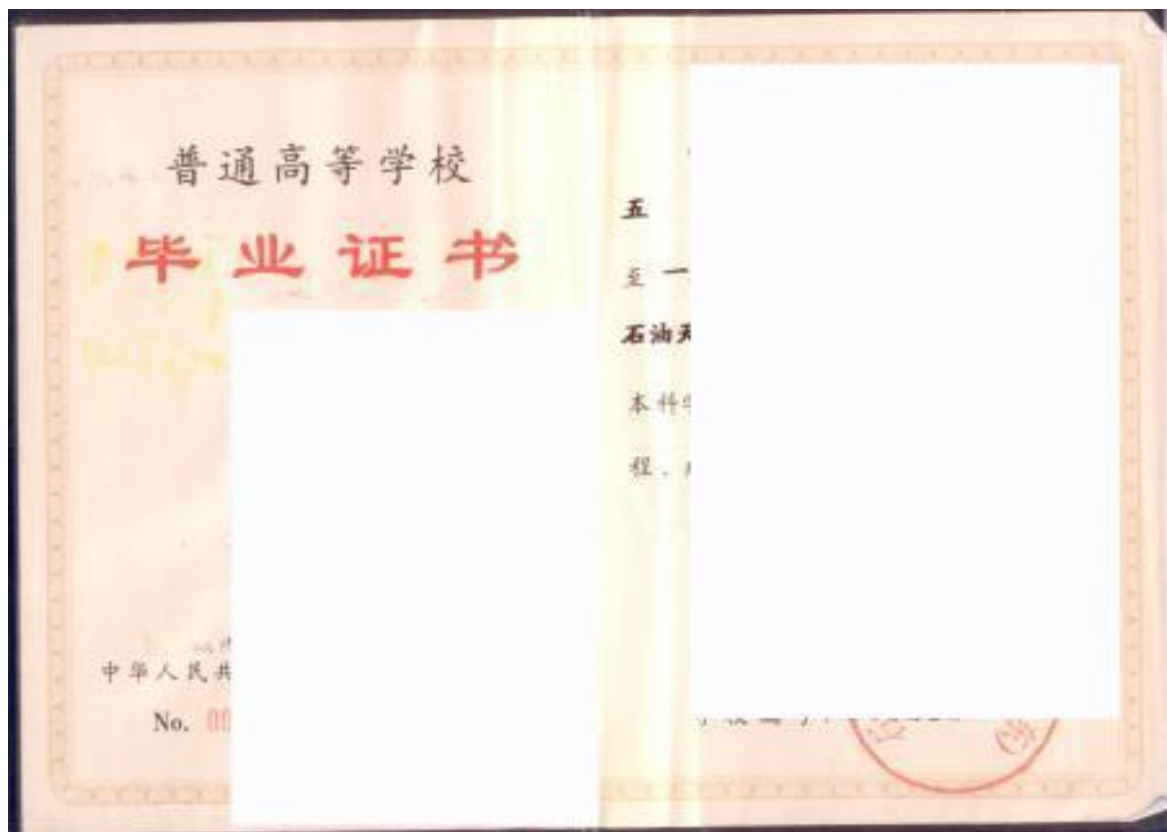 普通高等学校
毕业证书
中华人民共
No. 00
五
至 一
石油天
本科学
程、